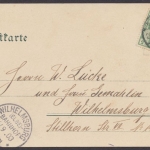 tkarte
Herrn W. Lücke
und Frau Gemahlin
Wilhelmsburg
Stillhorn Nr VI
WILHELMSBURG